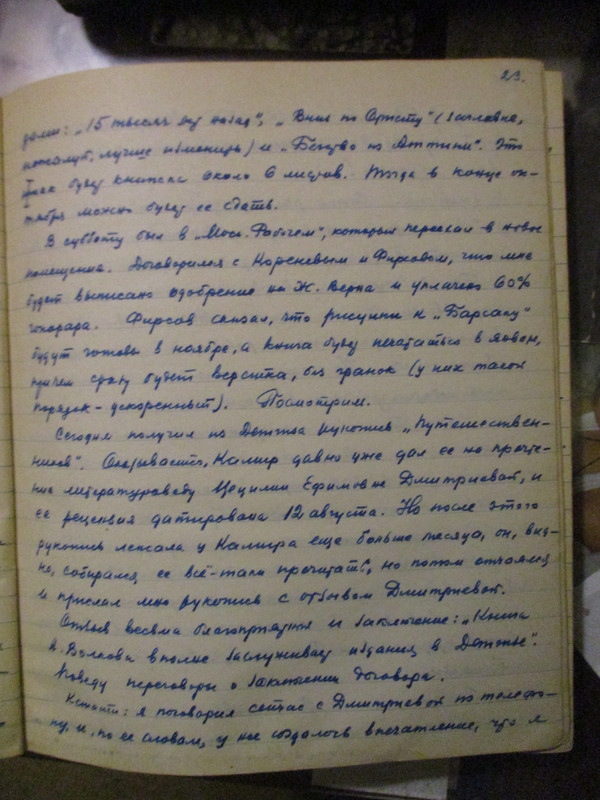 23.
дами: „15 тысяч лет назад", „Вниз по (заглавие,
пожалуй, лучше изменить) и „Бегство из Аттики". Это
итак будет книжка около 6 листов. Тогда в конце ок-
тября можно будет ее сдать.
В субботу был в „Моск. Рабочем", который переехал в новое
помещение. Договорился с Кореневым и Фирсовым, что мне
будет выписано одобрение на Ж. Верна и уплачено 60%
гонорара. Фирсов сказал, что рисунки к „Барсаку"
будут готовы в ноябре, а книга будет печататься в январе,
причем сразу будет верстка, без гранок (у них такой
порядок – ускоренный). Посмотрим.
Сегодня получил из Детгиза рукопись „Путешествен-
ников". Оказывается, Камир давно уже дал ее на прочте-
ние литературоведу Цецилии Ефимовне Дмитриевой, и
ее рецензия датирована 12 августа. Но после этого
рукопись лежала у Камира еще больше месяца, он, вид-
но, собирался ее всё-таки прочитать, но потом отчаялся
и прислал мне рукопись с отзывом Дмитриевой.
Отзыв весьма благоприятный и заключение: „Книга
А. Волкова вполне заслуживает издания в Детгизе".
Поведу переговоры о заключении договора.
Кстати: я поговорил сейчас с Дмитриевой по телефо-
ну, и, по ее словам, у нее создалось впечатление, что я